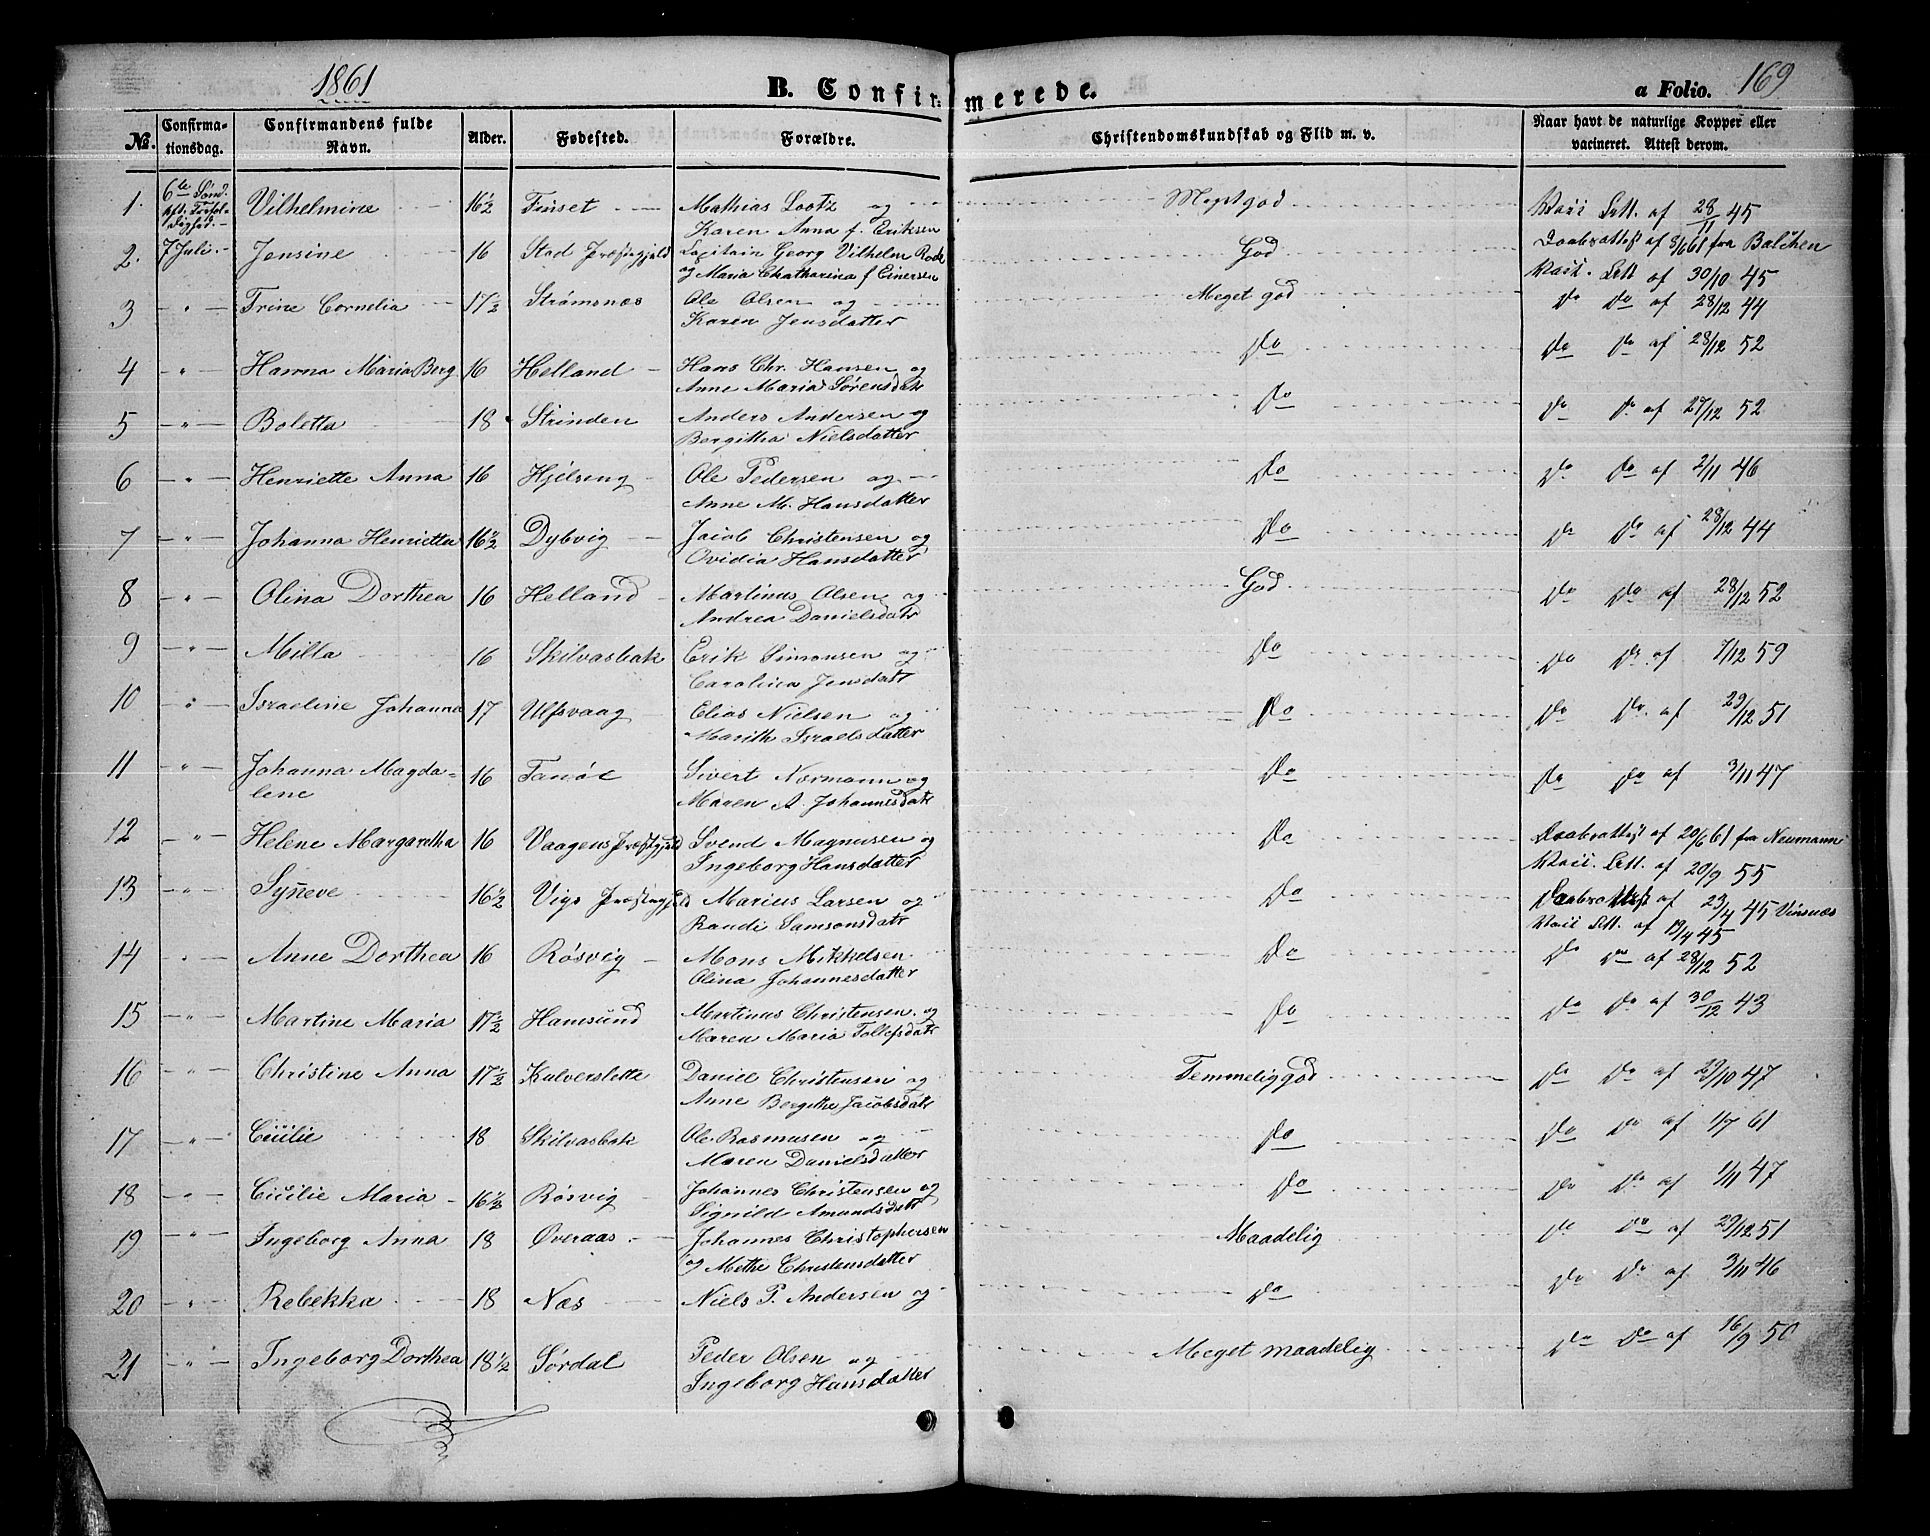 1861
B. Confirmerede.
a Folio. 169
No. Confirmationsdag. Confirmandens fulde Navn. Alder. Fødested. Forældre. Christendomskundskab og Flid m. v. Naar havt de naturlige Kopper eller vacineret. Attest derom.
1. 6te Sønd. Vilhelmine 16½ Finset Mathias Lootz og Karen Anna f. Eriksen Megetgod Sett. af 28/11 45
2. 7 Juli. Jensine 16 Stad Præstegjeld Capitain Georg Vilhelm og Maria Chatharina f Einersen God Daabsattest af 8/6 61 fra Balchen
Sett af 30/10 45
3 " Trine Cornelia 17½ Strømsnæs Ole Olsen og Karen Jensdatter Meget god Do Do af 28/12 44
4 " Hanna Maria Berg 16 Helland Hans Chr. Hansen og Anne Maria Sørensdatr Do Do Do af 28/12 52
5 " Boletta 18 Strinden Anders Andersen og Bergitha Nielsdatter Do Do Do af 27/12 52
6 " Henriette Anna 16 Hjelseng Ole Pedersen og Anne M. Hansdatter Do Do Do af 2/11 46
7 " Johanna Henrietta 16½ Dybvig Jacob Christensen og Ovidia Hansdatter Do Do Do af 28/12 44
8 " Olina Dorthea 16 Helland Martinus Olsen og Andrea Danielsdatr God Do Do af 28/12 52
9 " Milla 16 Skilvasbak Erik Simonsen og Carolina Jensdatr Do Do Do af 7/12 59
10 " Israeline Johanna 17 Ulfsvaag Elias Nielsen og Marith Israelsdatter Do Do Do af 29/12 51
11 " Johanna Magdalene 16 Tanøe Sivert Normann og Maren A. Johannesdatr Do Do Do af 3/11 47
12 " Helene Margaretha 16 Vaagens Præstegjeld Svend Magnusen og Ingeborg Hansdatter Do Daabsattest af 20/6 61 fra Neumann
Sett. af 20/9 55
13 " Syneve 16½ Vigs Præstegjeld Marius Larsen og Randi Samsonsdatr Do Daabsattest af 23/4 45 Vinsnæs
Sett. af 19/4 45
14 " Anne Dorthea 16 Røsvig Mons Mikkelsen Olina Johannesdatter Do Do Do af 28/12 52
15 " Martine Maria 17½ Hamsund Martinus Christensen og Maren Maria Tollefsdatr Do Do Do af 30/12 43
16 " Christine Anna 17½ Kalverslette Daniel Christensen og Anne Bergithe Jacobsdatr Temmeliggod Do Do af 29/10 47
17 " Cicilie 18 Skilvasbak Ole Rasmusen og Maren Danielsdatter Do Do Do af 1/7 61
18 " Cicilie Maria 16½ Røsvig Johannes Christensen og Signild Amundsdatr Do Do Do af 1/11 47
19 " Ingeborg Anna 18 Øveraas Johannes Christophersen og Methe Christensdatter Maadelig Do Do af 29/12 51
20 " Rebekka 18 Næs Niels P. Andersen og Do Do Do af 3/11 46
21 " Ingeborg Dorthea 18½ Sørdal Peder Olsen og Ingeborg Hansdatter Meget maadelig Do Do af 16/9 50